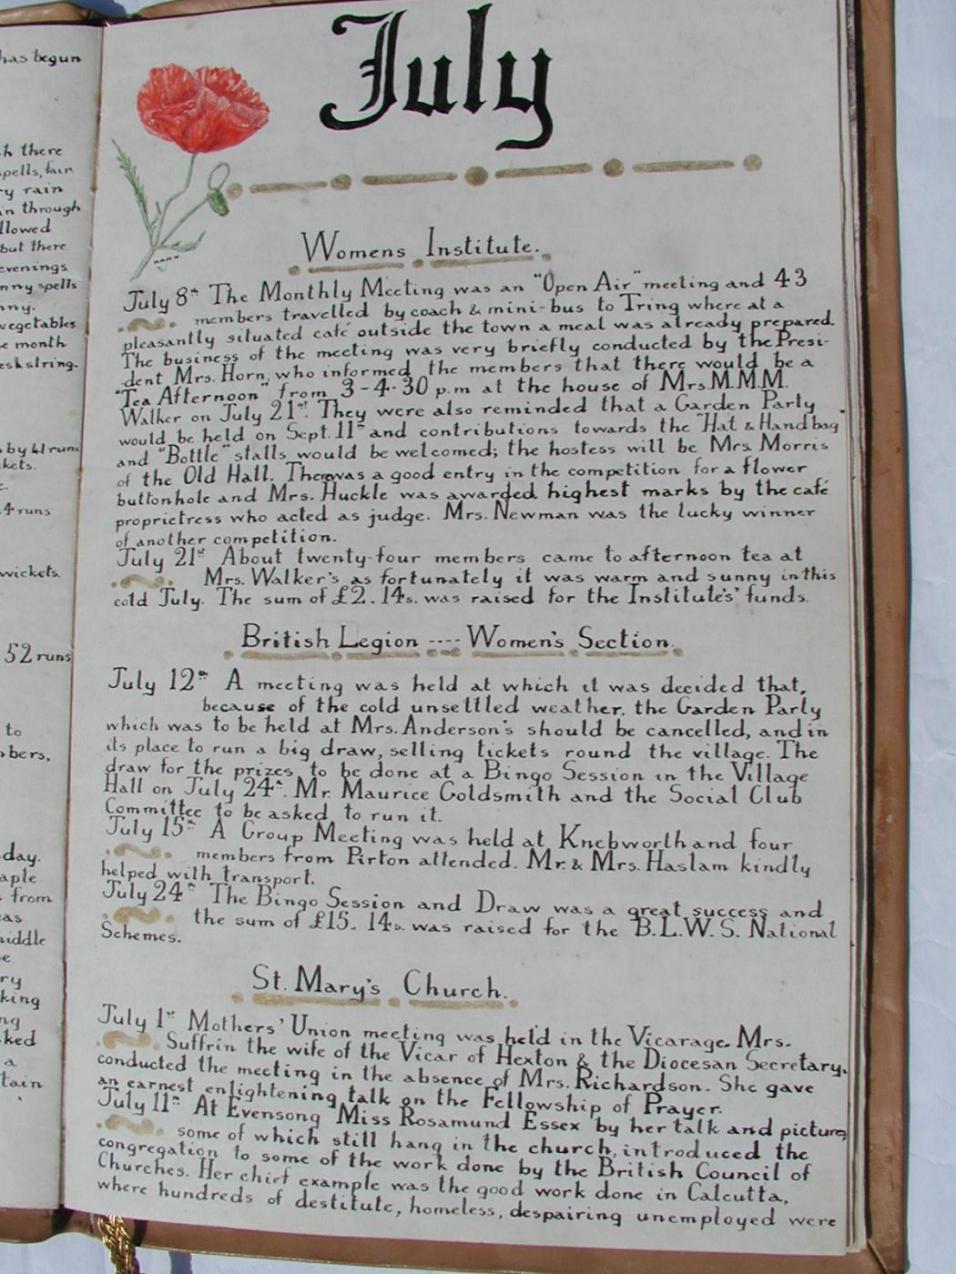 has begun
h there
spells, fair
ry rain
in through
llowed
but there
evenings
nny spells
nny.
vegetables
e month
esh string.
by 41 runs
kets.
4 runs
wickets.
52 runs
to
bers,
day.
aple
from
as
middle
e
ry
king
ng
ked
a
tain
July
Womens Institute.
July 8th The Monthly Meeting was an "Open Air" meeting and 43
members travelled by coach & mini-bus to Tring where at a
pleasantly situated café outside the town a meal was already prepared.
The business of the meeting was very briefly conducted by the Presi-
dent Mrs. Horn, who informed the members that there would be a
"Tea Afternoon" from 3-4.30 p.m at the house of Mrs. M.M.M.
Walker on July 21st. They were also reminded that a Garden Party
would be held on Sept. 11th and contributions towards the "Hat & Handbag
and "Bottle" stalls would be welcomed; the hostess will be Mrs. Morris
of the Old Hall. There was a good entry in the competition for a flower
buttonhole and Mrs. Huckle was awarded highest marks by the café
proprietress who acted as judge. Mrs. Newman was the lucky winner
of another competition.
July 21st About twenty-four members came to afternoon tea at
Mrs. Walker's as fortunately it was warm and sunny in this
cold July. The sum of £2. 14s. was raised for the Institutes' funds.
British Legion ---- Women's Section.
July 12th A meeting was held at which it was decided that,
because of the cold unsettled weather, the Garden Party
which was to be held at Mrs. Anderson's should be cancelled, and in
its place to run a big draw, selling tickets round the village. The
draw for the prizes to be done at a Bingo Session in the Village
Hall on July 24th. Mr. Maurice Goldsmith and the Social Club
Committee to be asked to run it.
July 15th A Group Meeting was held at Knebworth and four
members from Pirton attended. Mr. & Mrs. Haslam kindly
helped with transport.
July 24th The Bingo Session and Draw was a great success and
the sum of £15. 14s. was raised for the B.L.W.S. National
Schemes.
St. Mary's Church.
July 1st Mothers' Union meeting was held in the Vicarage. Mrs.
Suffrin the wife of the Vicar of Hexton & the Diocesan Secretary,
conducted the meeting in the absence of Mrs. Richardson. She gave
an earnest enlightening talk on the Fellowship of Prayer.
July 11th At Evensong Miss Rosamund Essex by her talk and pictures
some of which still hang in the church, introduced the
congregation to some of the work done by the British Council of
Churches. Her chief example was the good work done in Calcutta,
where hundreds of destitute, homeless, despairing unemployed were